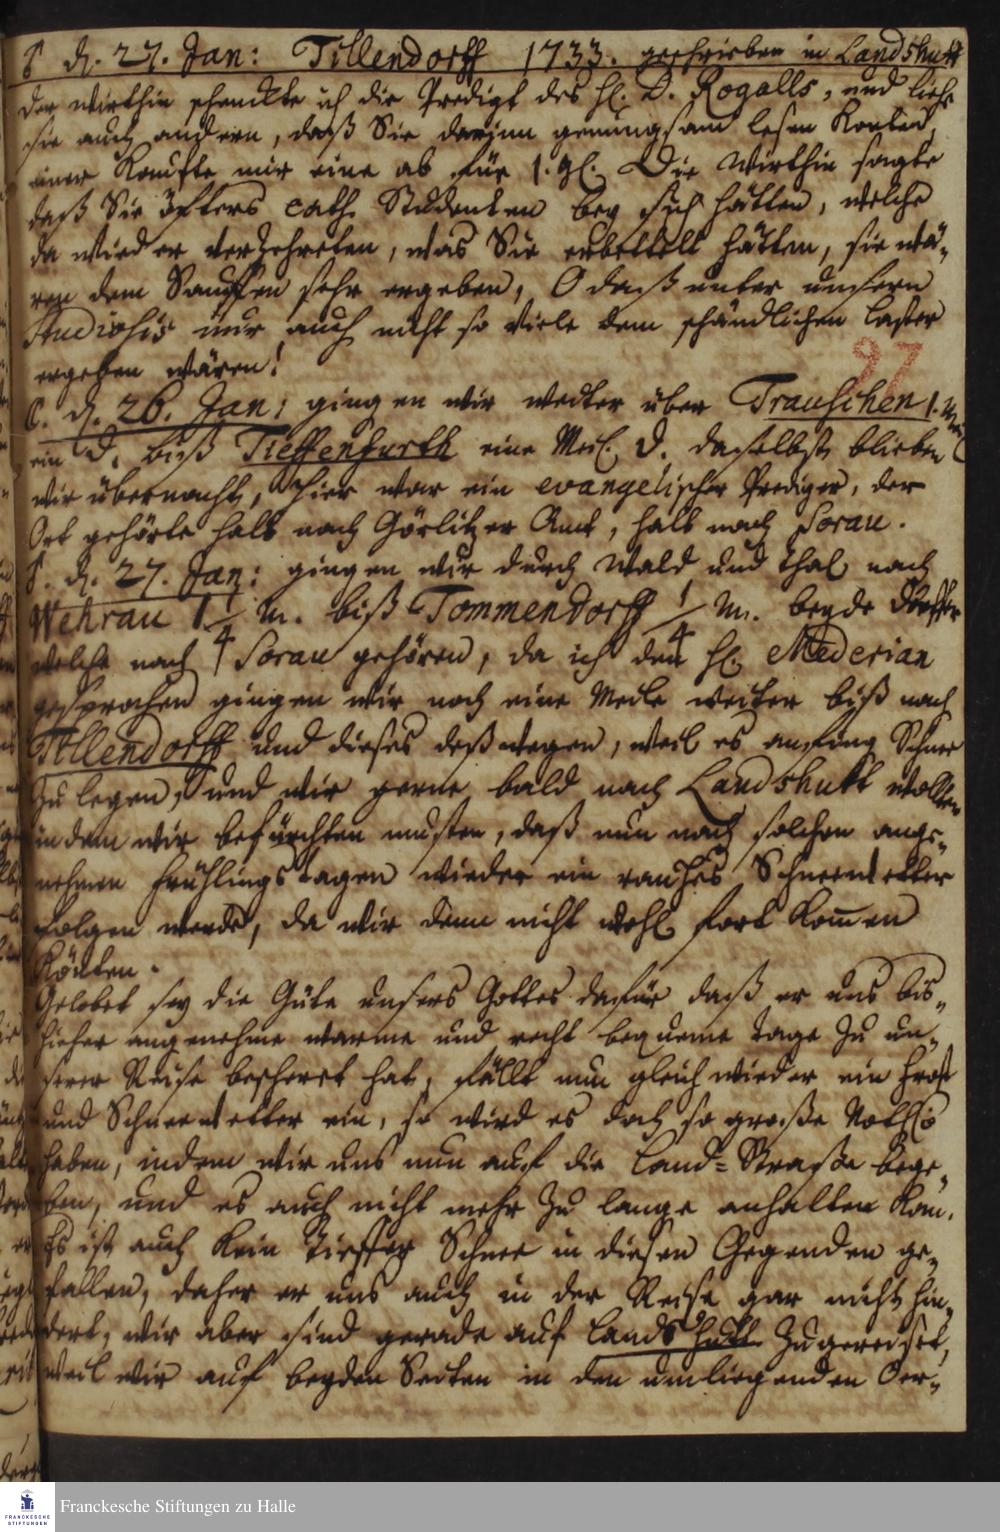 d. 27. Jan: Tillendorff 1733. geschrieben in Landshutt
der wirthin schenckte ich die Predigt des H. D. Rogalls, und ließ
sie auch andern, daß Sie darinn genungsam lesen konten,
einer kaufte mir eine ab für 1. gl. Die Wirthin sagte
daß Sie öfters cath. Studenten bey sich hätten, welche
da wieder verzehreten, was Sie erbettelt hätten, sie wä-
ren dem Sauffen sehr ergeben, O daß unter unsern
Studiosis nur auch nicht so viele dem schändlichen Laster
ergeben wären!
27
d. 26. Jan: gingen wir weiter über Trauschen 1. Meil
ein d. biß Tieffenfurth eine Meil. d. daselbst blieben
wir übernacht, hier war ein evangelischer Prediger, der
Ort gehörte halb nach Görlitzer Amt, halb nach Sorau.
d. 27. Jan: gingen wir durch Wald und Thal nach
Wehrau 1 1/4 m. biß Tommendorff 1/4 m. beyde Dörffer
welche nach Sorau gehören, da ich den H. Mederian
gesprochen gingen wir noch eine Meile weiter biß nach
Tillendorff und dieses deßwegen, weil es anfing Schnee
zu legen, und wir gerne bald nach Landshutt wollten
indem wir befürchten musten, daß nun nach solchen ange-
nehmen Frühlingstagen wieder ein rauhes Schneewetter
folgen werde, da wir denn nicht wohl fort kom̄en
könten.
Gelobet sey die Güte unsers Gottes dafür daß er uns bis-
hieher angenehme warme und recht bequeme tage zu un-
serer Reise bescheret hat, fällt nun gleich wieder ein Frost
und Schneewetter ein, so wird es doch so große Noth
haben, indem wir uns nun auf die Land-Straße bege-
ben, und es auch nicht mehr zu lange anhalten kan.
Es ist auch kein tieffer Schnee in diesen Gegenden ge-
fallen, daher er uns auch in der Reise gar nichts hin-
dert, wir aber sind gerade auf Landshutt zugereiset,
weil wir auf beyden Seiten in den umliegenden Oer-
Franckesche Stiftungen zu Halle
FRANCKESCHE
STIFTUNGEN